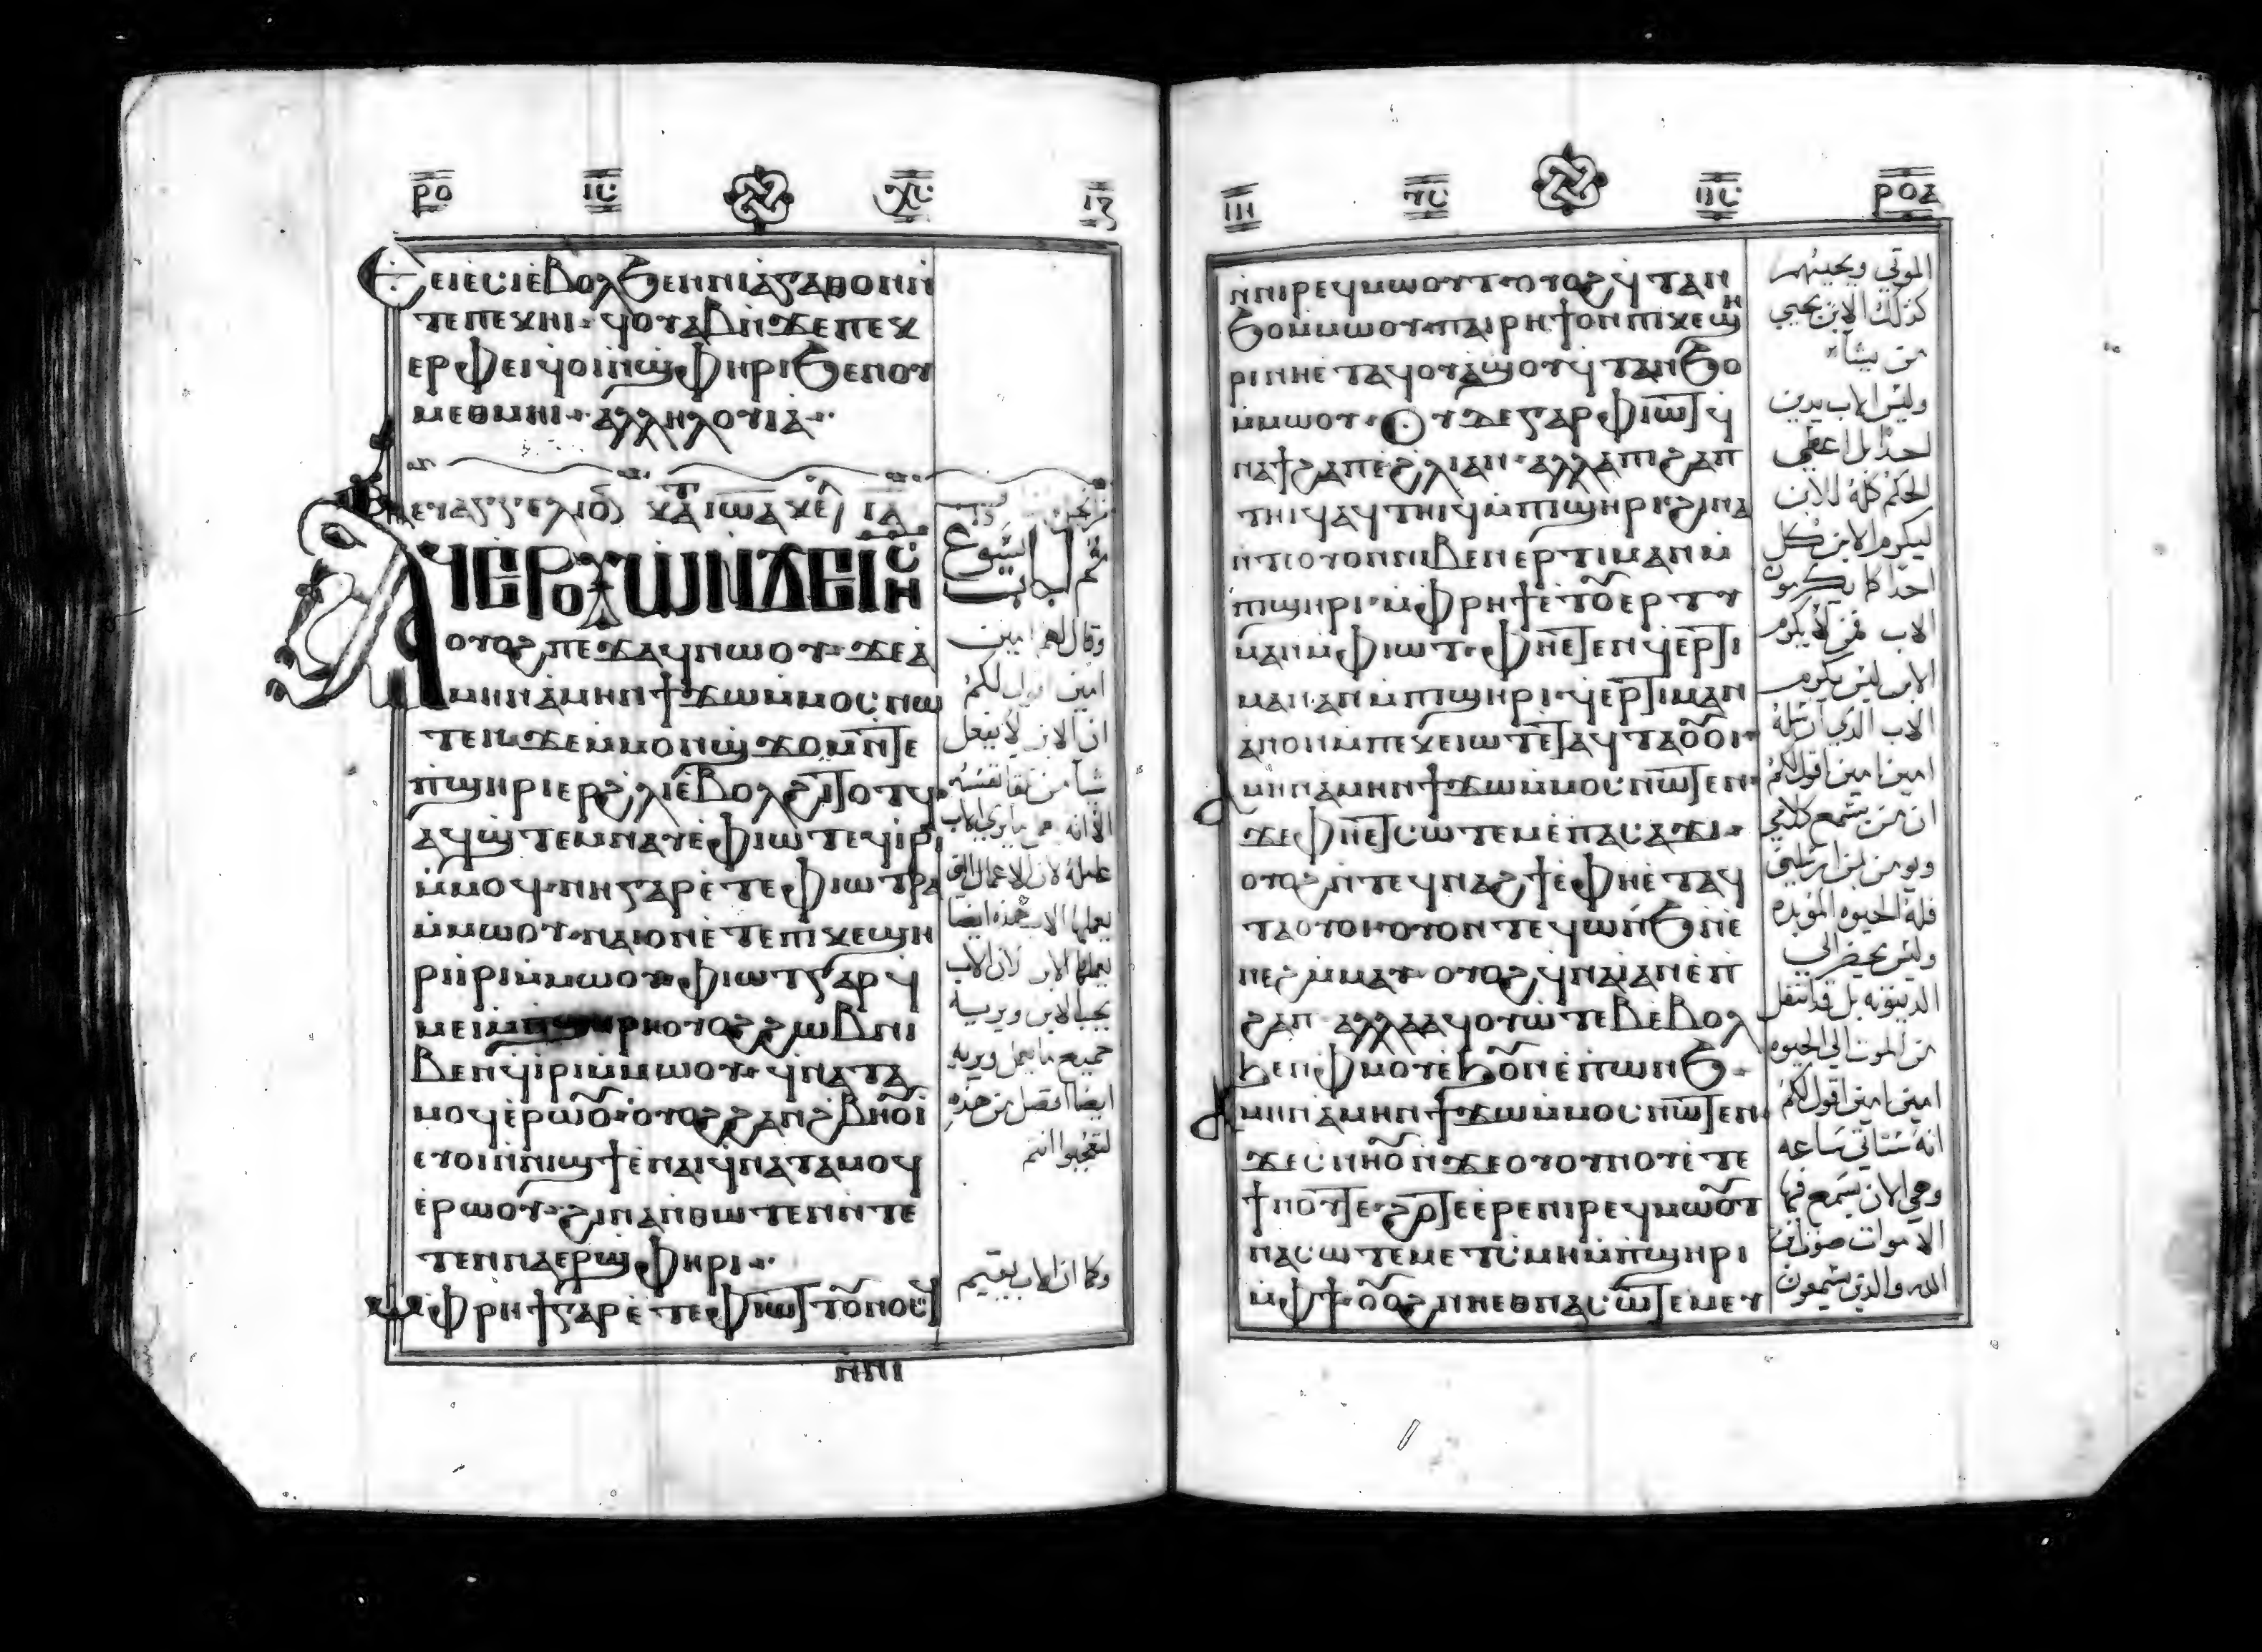 ⲣⲟ ⲓⲥ ⲭⲥ ⲓⲍ
Ⲉⲓⲉⲥⲓ ⲉⲃⲟⲗϧⲉⲛⲛⲓⲁⲅⲁⲑⲟⲛⲛ̀
ⲧⲉⲡⲉⲕⲏⲓ ϥⲟⲩⲁⲃⲛ̀ϫⲉⲡⲉⲕ
ⲉⲣⲫⲉⲓ ϥⲟⲓⲛ̀ϣⲫⲏⲣⲓϧⲉⲛⲟⲩ
ⲙⲉⲑⲙⲏⲓ ⲁⲗⲗⲏⲗⲟⲩⲓⲁ
ⲉⲩⲁⲅⲅⲉⲗⲓⲟⲛ ⲕⲁⲧ ⲓⲱⲁ ⲕⲉⲫ ⲓⲁ
ⲁϥⲉⲣⲟⲩⲱⲛ̀ϫⲉⲓⲏⲥ
ⲟⲩⲟϩⲡⲉϫⲁϥⲛⲱⲟⲩ ϫⲉⲁ
ⲙⲏⲛⲁⲙⲏⲛϯϫⲱⲙ̀ⲙⲟⲥⲛⲱ
ⲧⲉⲛϫⲉⲙ̀ⲙⲟⲛϣϫⲟⲙⲛ̀ⲧⲉ
ⲡ̀ϣⲏⲣⲓⲉⲣϩⲗⲓⲉ̀ⲃⲟⲗϩⲓⲧⲟⲧϥ
ⲁϥϣⲧⲉⲙⲛⲁⲩⲉ̀ⲫⲓⲱⲧⲉϥⲓⲣⲓ
ⲙ̀ⲙⲟϥ ⲛⲏⲅⲁⲣⲉ̀ⲧⲉⲫⲓⲱⲧⲣⲁ
ⲙ̀ⲙⲱⲟⲩ ⲛⲁⲓⲟⲛⲉ̀ⲧⲉⲡⲓⲕⲉϣⲏ
ⲣⲓⲓ̀ⲣⲓⲙ̀ⲙⲱⲟⲩ ⲫⲓⲱⲧⲅⲁⲣϥ
ⲙⲉⲓⲙ̀ⲡϣⲏⲣⲓⲟⲩⲟϩϩⲱⲃⲛⲓ
ⲃⲉⲛϥⲓ̀ⲣⲓⲙ̀ⲙⲱⲟⲩ ϥⲛⲁⲧⲁ
ⲙⲟϥⲉ̀ⲣⲱⲟⲩ ⲟⲩⲟϩϩⲁⲛϩⲃⲏⲟⲩⲓ̀
ⲉⲩⲟⲓⲛ̀ⲛⲓϣϯⲉ̀ⲛⲁⲓϥⲛⲁⲧⲁⲙⲟϥ
ⲉ̀ⲣⲱⲟⲩ ϩⲓⲛⲁⲛ̀ⲑⲱⲧⲉⲛⲛ̀ⲧⲉ
ⲧⲉⲛⲛⲁⲉⲣϣⲫⲏⲣⲓ
ⲙ̀ⲫⲣⲏϯⲅⲁⲣⲉ̀ⲧⲉⲫⲓⲱⲧⲧⲟⲩⲛⲟⲥ
ⲛ̀ⲛⲓ
يسوع
وقال لهم امين
امين اقول لكم
ان الابن لا يفعل
شيا من تلقا نفسه
الا انه يرى الاب
عمله لان الاعمال التي
يعملها الاب هذه ايضا
يعملها الابن لان الاب
يحب الابن ويريه
جميع ما يعمل ويريه
ايضا افضل من هذه
لتعجبوا انتم
وكما ان الاب يقيم
ⲓⲏ ⲩⲥ ⲑⲥ ⲣⲟⲁ
ⲛ̀ⲛⲓⲣⲉϥⲙⲱⲟⲩⲧ ⲟⲩⲟϩϥⲧⲁⲛ
ϧⲟⲙ̀ⲙⲱⲟⲩ ⲡⲁⲓⲣⲏϯⲟⲛⲡⲓⲕⲉϣⲏ
ⲣⲓⲛⲏⲉⲧⲁϥⲟⲩⲁϣⲟⲩϥⲧⲁⲛϧⲟ
ⲙ̀ⲙⲱⲟⲩ Ⲟⲩⲇⲉⲅⲁⲣⲫⲓⲱⲧϥ
ⲛⲁϯϩⲁⲡⲉ̀ϩⲗⲓⲁⲛ ⲁⲗⲗⲁⲡⲓϩⲁⲡ
ⲧⲏⲓϥⲁϥⲧⲏⲓϥⲙ̀ⲡⲓϣⲏⲣⲓ ϩⲓⲛⲁ
ⲛ̀ⲧⲉⲟⲩⲟⲛⲛⲓⲃⲉⲛⲉⲣⲧⲓⲙⲁⲛⲙ̀
ⲡⲓϣⲏⲣⲓ ⲙ̀ⲫⲣⲏϯⲉ̀ⲧⲟⲩⲉⲣⲧⲓ
ⲙⲁⲛⲙ̀ⲫⲓⲱⲧ ⲫⲏⲉ̀ⲧⲉⲛϥⲉⲣⲧⲓ
ⲙⲁⲛⲁⲛⲙ̀ⲡⲓϣⲏⲣⲓ ϥⲉⲣⲧⲓⲙⲁⲛ
ⲁⲛⲟⲛⲙ̀ⲡⲉⲕⲉⲓⲱⲧⲉⲧⲁϥⲧⲁⲟⲩⲟⲓ
ⲁⲙⲏⲛⲁⲙⲏⲛϯϫⲱⲙ̀ⲙⲟⲥⲛⲱⲧⲉⲛ
ϫⲉⲫⲏⲉⲧⲥⲱⲧⲉⲙⲉ̀ⲡⲁⲥⲁϫⲓ
ⲟⲩⲟϩⲛ̀ⲧⲉϥⲛⲁϩϯⲉ̀ⲫⲏⲉ̀ⲧⲁϥ
ⲧⲁⲟⲩⲟⲓ ⲟⲩⲟⲛⲧⲉϥⲱⲛϧⲛ̀ⲉ̀
ⲛⲉϩⲙ̀ⲙⲁⲩ ⲟⲩⲟϩϥⲛⲁⲓⲁⲛⲉ̀ⲡ̀
ϩⲁⲡ ⲁⲗⲗⲁⲁϥⲟⲩⲱⲧⲉⲃⲉ̀ⲃⲟⲗ
ϧⲉⲛⲫⲙⲟⲩⲉ̀ϧⲟⲩⲛⲉ̀ⲡⲱⲛϧ
ⲁⲙⲏⲛⲁⲙⲏⲛϯϫⲱⲙ̀ⲙⲟⲥⲛⲱⲧⲉⲛ
ϫⲉⲥⲛⲏⲟⲩⲛ̀ϫⲉⲟⲩⲟⲩⲛⲟⲩⲉ̀ⲧⲉ
ϯⲛⲟⲩⲧⲉ ϩⲟⲧⲉⲉ̀ⲣⲉⲛⲓⲣⲉϥⲙⲱⲟⲩⲧ
ⲛⲁⲥⲱⲧⲉⲙⲉⲧⲥⲙⲏⲙ̀ⲡ̀ϣⲏⲣⲓ
ⲙ̀ⲫϯ ⲟⲩⲟϩⲛⲏⲉⲑⲛⲁⲥⲱⲧⲉⲙⲉⲩ
الموتى ويحييهم
كذلك الابن يحيي
من يشاء
وليس الاب يدين
احدا بل اعطى
الحكم كله للابن
ليكرم الابن كل
احد كما يكرمون
الاب فمن لا يكرم
الابن ليس يكرم
الاب الذي ارسله
امين امين اقول لكم
ان من يسمع كلامي
ويومن بمن ارسلني
فله الحيوه المؤبده
وليس يحضر الى
الدينونه بل قد انتقل
من الموت الى الحيوه
امين امين اقول لكم
انه ستاتي ساعه
وهي الان يسمع فيها
الاموات صوت ابن
الله والذين يسمعون